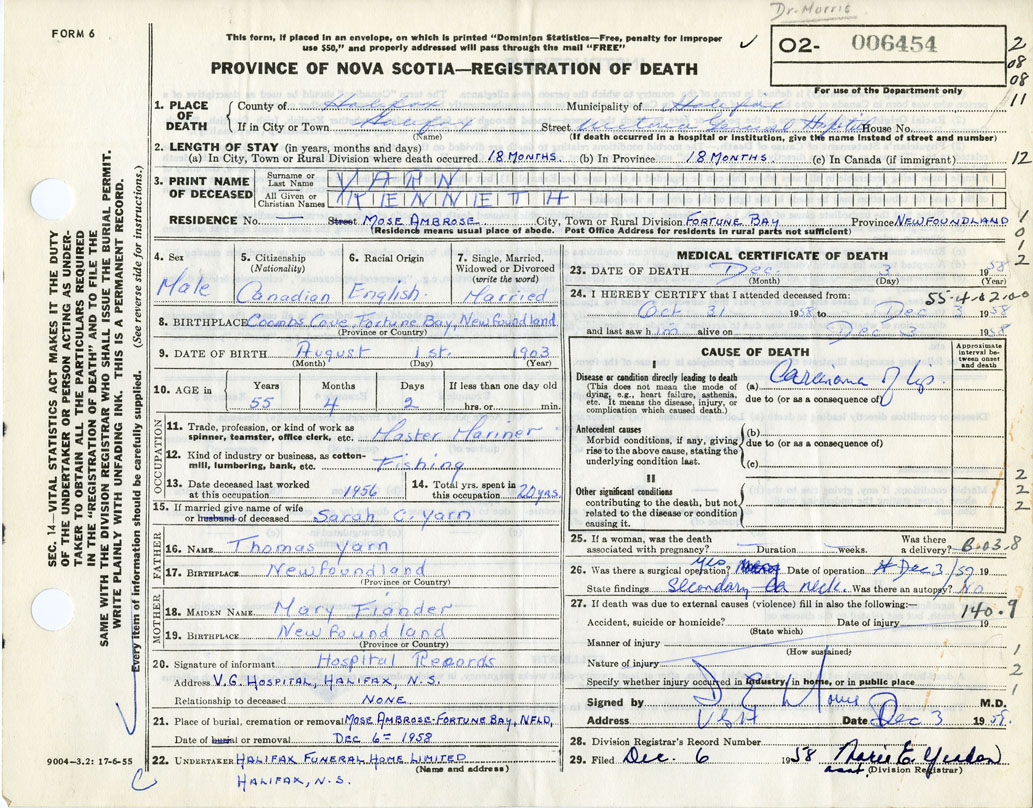 Dr. Morris
FORM 6
This form, if placed in an envelope, on which is printed "Dominion Statistics—Free, penalty for improper
use $50," and properly addressed will pass through the mail "FREE"
✓ O2- 006454
For use of the Department only
2
08
08
11
PROVINCE OF NOVA SCOTIA—REGISTRATION OF DEATH
1. PLACE OF DEATH
County of Halifax Municipality of Halifax
If in City or Town Halifax Street Victoria General Hospital House No.
(Name) (If death occurred in a hospital or institution, give the name instead of street and number)
2. LENGTH OF STAY (in years, months and days)
(a) In City, Town or Rural Division where death occurred 18 MONTHS (b) In Province 18 MONTHS. (c) In Canada (if immigrant) 12
3. PRINT NAME OF DECEASED
Surname or Last Name YARN
All Given or Christian Names KENNETH
RESIDENCE No. — Street MOSE AMBROSE City, Town or Rural Division FORTUNE BAY Province NEWFOUNDLAND
(Residence means usual place of abode. Post Office Address for residents in rural parts not sufficient)
1
0
1
2
SEC. 14—VITAL STATISTICS ACT MAKES IT THE DUTY
OF THE UNDERTAKER OR PERSON ACTING AS UNDER-
TAKER TO OBTAIN ALL THE PARTICULARS REQUIRED
IN THE "REGISTRATION OF DEATH" AND TO FILE THE
SAME WITH THE DIVISION REGISTRAR WHO SHALL ISSUE THE BURIAL PERMIT.
WRITE PLAINLY WITH UNFADING INK. THIS IS A PERMANENT RECORD.
Every item of information should be carefully supplied. (See reverse side for instructions.)
4. Sex
Male
5. Citizenship
(Nationality)
Canadian
6. Racial Origin
English.
7. Single, Married,
Widowed or Divorced
(write the word)
Married
8. BIRTHPLACE Coombs Cove, Fortune Bay, Newfoundland
(Province or Country)
9. DATE OF BIRTH August 1st. 1903
(Month) (Day) (Year)
10. AGE in Years Months Days If less than one day old
55 4 2 hrs. or min.
OCCUPATION
11. Trade, profession, or kind of work as
spinner, teamster, office clerk, etc. Master Mariner
12. Kind of industry or business, as cotton-
mill, lumbering, bank, etc. Fishing
13. Date deceased last worked
at this occupation 1956
14. Total yrs. spent in
this occupation 20 yrs.
15. If married give name of wife
or husband of deceased Sarah C. Yarn
FATHER
16. NAME Thomas Yarn
17. BIRTHPLACE Newfoundland
(Province or Country)
MOTHER
18. MAIDEN NAME Mary Fiander
19. BIRTHPLACE Newfoundland
(Province or Country)
20. Signature of informant Hospital Records
Address V.G. HOSPITAL, HALIFAX, N.S.
Relationship to deceased NONE.
21. Place of burial, cremation or removal MOSE AMBROSE-FORTUNE BAY, NFLD,
Date of burial or removal DEC 6TH 1958
22. UNDERTAKER HALIFAX FUNERAL HOME LIMITED
(Name and address)
HALIFAX, N.S.
9004-3.2: 17-6-55
MEDICAL CERTIFICATE OF DEATH
23. DATE OF DEATH Dec. 3 1958
(Month) (Day) (Year)
24. I HEREBY CERTIFY that I attended deceased from: 55-4-02-00
Oct 31 1958 to Dec 3 1958
and last saw him alive on Dec 3 1958
CAUSE OF DEATH
Approximate interval between onset and death
I
Disease or condition directly leading to death
(This does not mean the mode of
dying, e.g., heart failure, asthenia,
etc. It means the disease, injury, or
complication which caused death.)
(a) Carcinoma of lip.
due to (or as a consequence of)
Antecedent causes
Morbid conditions, if any, giving
rise to the above cause, stating the
underlying condition last.
(b)
due to (or as a consequence of)
(c)
II
Other significant conditions
contributing to the death, but not
related to the disease or condition
causing it.
2
2
2
2
25. If a woman, was the death
associated with pregnancy? — Duration weeks. Was there
a delivery? B-03.8
26. Was there a surgical operation? yes Date of operation Dec 3/57
State findings Secondary Ca neck. Was there an autopsy? No
27. If death was due to external causes (violence) fill in also the following:— 140.9
Accident, suicide or homicide? Date of injury 19
(State which)
Manner of injury
(How sustained)
Nature of injury
Specify whether injury occurred in industry, in home, or in public place
1
2
1
Signed by M.D.
Address VGH Date Dec 3 1958.
28. Division Registrar's Record Number
29. Filed Dec. 6 1958 Marie E.
asst (Division Registrar)